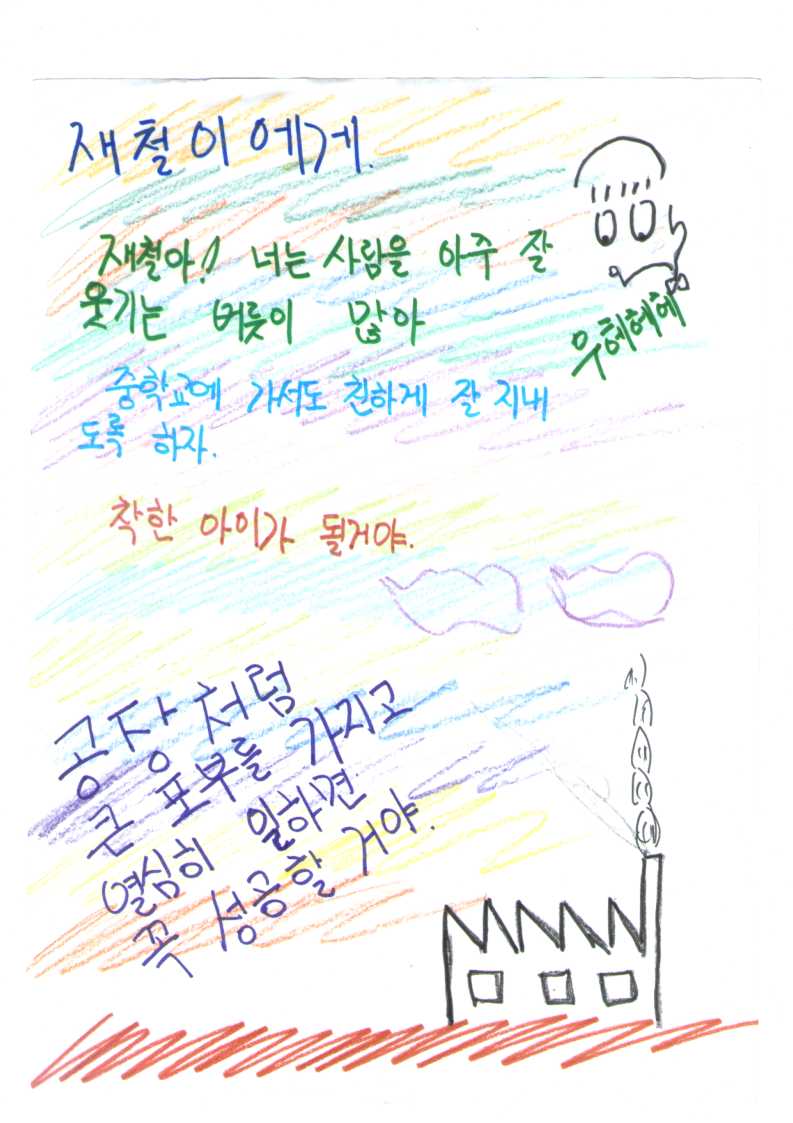 재철이에게.
재철아! 너는 사람을 아주 잘
웃기는 버릇이 많아
우헤헤헤
중학교에 가서도 친하게 잘 지내
도록 하자.
착한 아이가 될거야.
공장처럼
큰 포부를 가지고
열심히 일하면
꼭 성공할 거야.